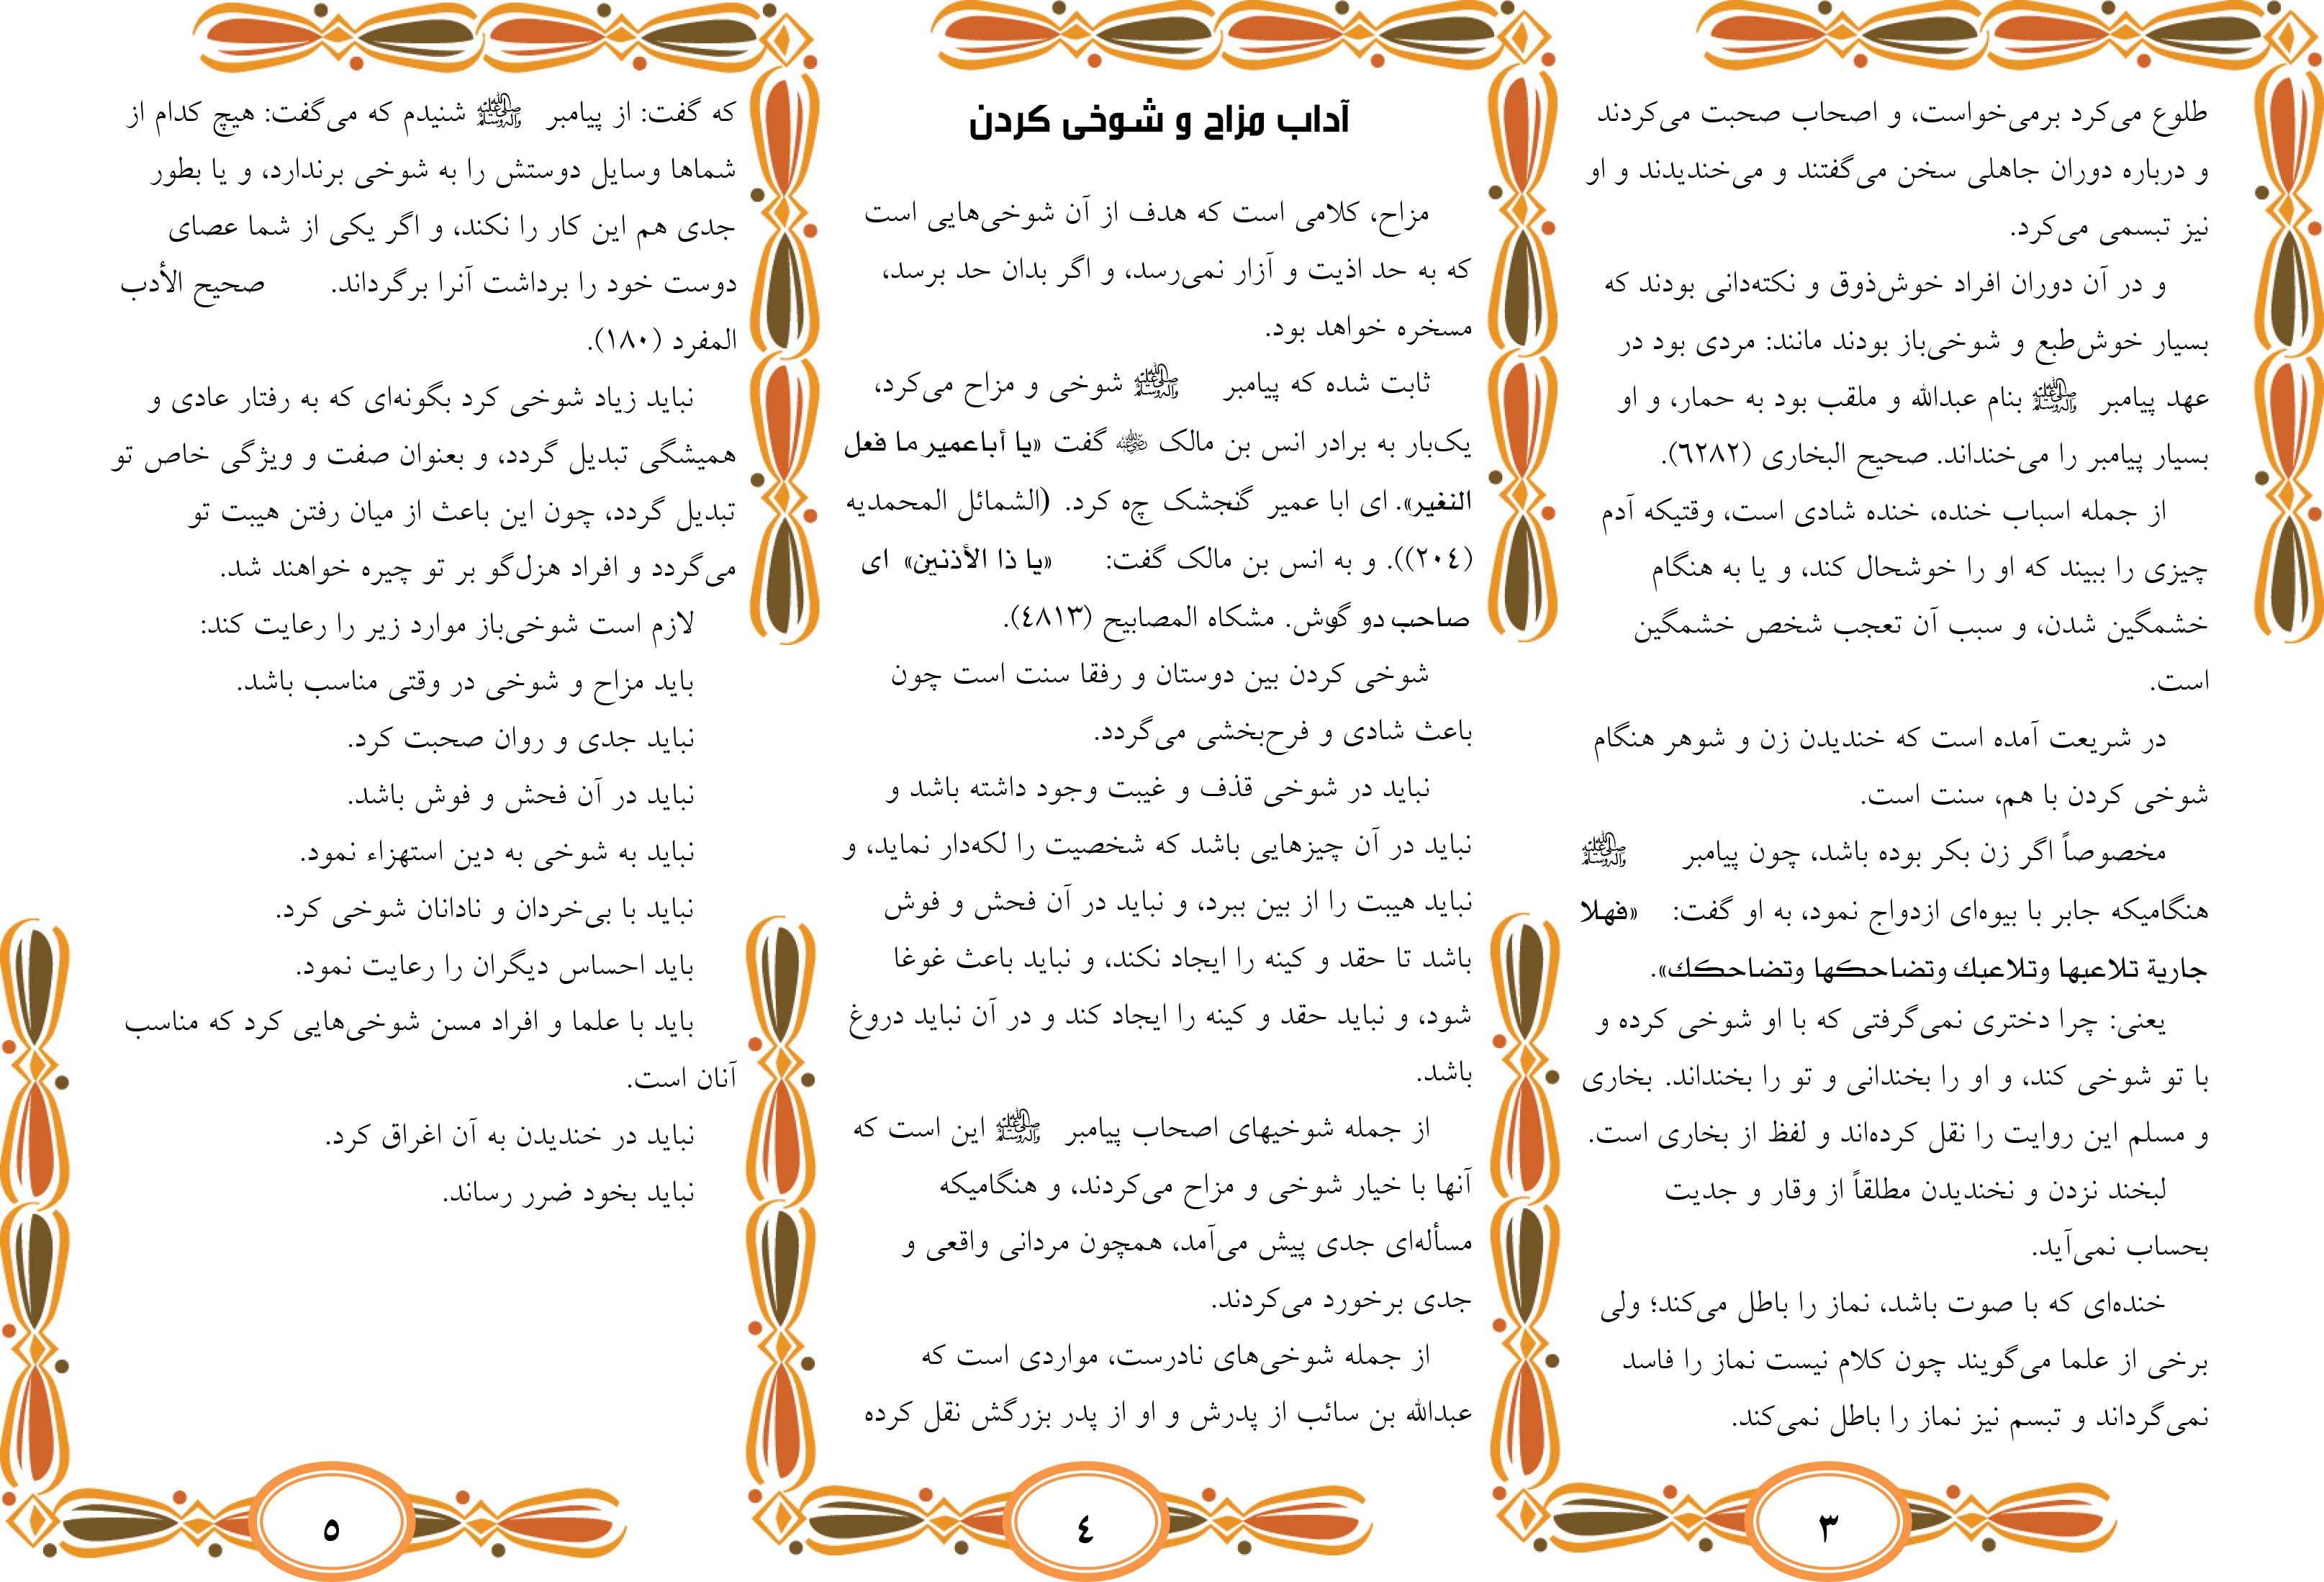 طلوع می‌کرد برمی‌خواست، و اصحاب صحبت می‌کردند
و درباره دوران جاهلی سخن می‌گفتند و می‌خندیدند و او
نیز تبسمی می‌کرد.
و در آن دوران افراد خوش‌ذوق و نکته‌دانی بودند که
بسیار خوش‌طبع و شوخی‌باز بودند مانند: مردی بود در
عهد پیامبر ﷺ بنام عبدالله و ملقب بود به حمار، و او
بسیار پیامبر را می‌خنداند. صحیح البخاری (٦٢٨٢).
از جمله اسباب خنده، خنده شادی است، وقتیکه آدم
چیزی را ببیند که او را خوشحال کند، و یا به هنگام
خشمگین شدن، و سبب آن تعجب شخص خشمگین
است.
در شریعت آمده است که خندیدن زن و شوهر هنگام
شوخی کردن با هم، سنت است.
مخصوصاً اگر زن بکر بوده باشد، چون پیامبر ﷺ
هنگامیکه جابر با بیوه‌ای ازدواج نمود، به او گفت: «فهلا
جارية تلاعبها وتلاعبك وتضاحكها وتضاحكك».
یعنی: چرا دختری نمی‌گرفتی که با او شوخی کرده و
با تو شوخی کند، و او را بخندانی و تو را بخنداند. بخاری
و مسلم این روایت را نقل کرده‌اند و لفظ از بخاری است.
لبخند نزدن و نخندیدن مطلقاً از وقار و جدیت
بحساب نمی‌آید.
خنده‌ای که با صوت باشد، نماز را باطل می‌کند؛ ولی
برخی از علما می‌گویند چون کلام نیست نماز را فاسد
نمی‌گرداند و تبسم نیز نماز را باطل نمی‌کند.
٣
آداب مزاح و شوخی کردن
مزاح، کلامی است که هدف از آن شوخی‌هایی است
که به حد اذیت و آزار نمی‌رسد، و اگر بدان حد برسد،
مسخره خواهد بود.
ثابت شده که پیامبر ﷺ شوخی و مزاح می‌کرد،
یک‌بار به برادر انس بن مالک رضی الله عنه گفت «يا أبا عمير ما فعل
النغير». ای ابا عمیر گنجشک چه کرد. (الشمائل المحمدیه
(٢٠٤)). و به انس بن مالک گفت: «يا ذا الأذنين» ای
صاحب دو گوش. مشکاه المصابیح (٤٨١٣).
شوخی کردن بین دوستان و رفقا سنت است چون
باعث شادی و فرح‌بخشی می‌گردد.
نباید در شوخی قذف و غیبت وجود داشته باشد و
نباید در آن چیزهایی باشد که شخصیت را لکه‌دار نماید، و
نباید هیبت را از بین ببرد، و نباید در آن فحش و فوش
باشد تا حقد و کینه را ایجاد نکند، و نباید باعث غوغا
شود، و نباید حقد و کینه را ایجاد کند و در آن نباید دروغ
باشد.
از جمله شوخیهای اصحاب پیامبر ﷺ این است که
آنها با خیار شوخی و مزاح می‌کردند، و هنگامیکه
مسأله‌ای جدی پیش می‌آمد، همچون مردانی واقعی و
جدی برخورد می‌کردند.
از جمله شوخی‌های نادرست، مواردی است که
عبدالله بن سائب از پدرش و او از پدر بزرگش نقل کرده
٤
که گفت: از پیامبر ﷺ شنیدم که می‌گفت: هیچ کدام از
شماها وسایل دوستش را به شوخی برندارد، و یا بطور
جدی هم این کار را نکند، و اگر یکی از شما عصای
دوست خود را برداشت آنرا برگرداند. صحیح الأدب
المفرد (١٨٠).
نباید زیاد شوخی کرد بگونه‌ای که به رفتار عادی و
همیشگی تبدیل گردد، و بعنوان صفت و ویژگی خاص تو
تبدیل گردد، چون این باعث از میان رفتن هیبت تو
می‌گردد و افراد هزل‌گو بر تو چیره خواهند شد.
لازم است شوخی‌باز موارد زیر را رعایت کند:
باید مزاح و شوخی در وقتی مناسب باشد.
نباید جدی و روان صحبت کرد.
نباید در آن فحش و فوش باشد.
نباید به شوخی به دین استهزاء نمود.
نباید با بی‌خردان و نادانان شوخی کرد.
باید احساس دیگران را رعایت نمود.
باید با علما و افراد مسن شوخی‌هایی کرد که مناسب
آنان است.
نباید در خندیدن به آن اغراق کرد.
نباید بخود ضرر رساند.
٥